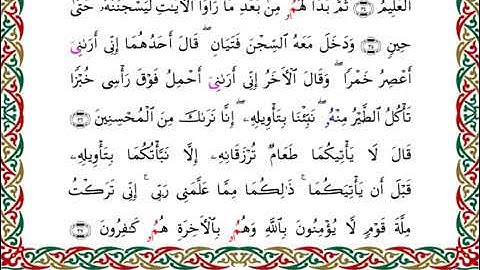 ٱلْعَلِيمُ ۝٣٤ ثُمَّ بَدَا لَهُمُۥ مِنۢ بَعْدِ مَا رَأَوُا۟ ٱلْأَيَٰتِ لَيَسْجُنُنَّهُۥ حَتَّىٰ
حِينٍ ۝٣٥ وَدَخَلَ مَعَهُ ٱلسِّجْنَ فَتَيَانِ ۖ قَالَ أَحَدُهُمَا إِنِّى أَرَىٰنِى
أَعْصِرُ خَمْرًا ۖ وَقَالَ ٱلْأَخَرُ إِنِّى أَرَىٰنِى أَحْمِلُ فَوْقَ رَأْسِى خُبْزًا
تَأْكُلُ ٱلطَّيْرُ مِنْهُۥ ۖ نَبِّئْنَا بِتَأْوِيلِهِۦ ۖ إِنَّا نَرَىٰكَ مِنَ ٱلْمُحْسِنِينَ ۝٣٦
قَالَ لَا يَأْتِيكُمَا طَعَامٌ تُرْزَقَانِهِۦ إِلَّا نَبَّأْتُكُمَا بِتَأْوِيلِهِۦ
قَبْلَ أَن يَأْتِيَكُمَا ۚ ذَٰلِكُمَا مِمَّا عَلَّمَنِى رَبِّى ۚ إِنِّى تَرَكْتُ
مِلَّةَ قَوْمٍ لَّا يُؤْمِنُونَ بِٱللَّهِ وَهُمُۥ بِٱلْأَخِرَةِ هُمُۥ كَٰفِرُونَ ۝٣٧